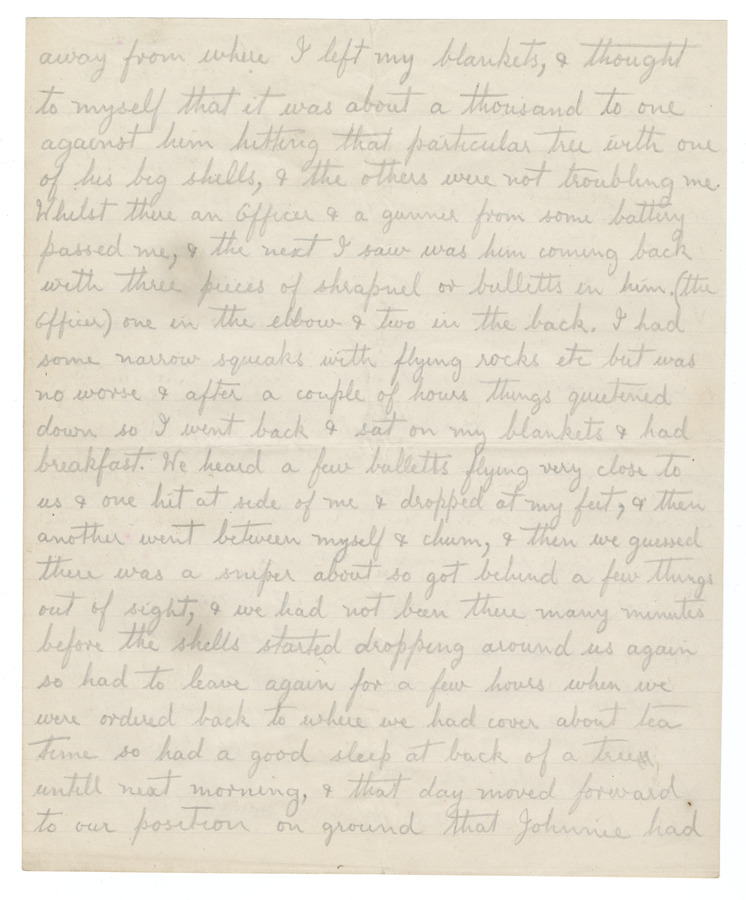 away from where I left my blankets, & thought
to myself that it was about a thousand to one
against him hitting that particular tree with one
of his big shells, & the others were not troubling me.
Whilst there an Officer & a gunner from some battery
passed me, & the next I saw was him coming back
with three pieces of shrapnel or bulletts in him. (the
Officer) one in the elbow & two in the back. I had
some narrow squeaks with flying rocks etc but was
no worse & after a couple of hours things quietened
down so I went back & sat on my blankets & had
breakfast. We heard a few bulletts flying very close to
us & one hit at side of me & dropped at my feet, & then
another went between myself & chum, & then we guessed
there was a sniper about so got behind a few things
out of sight, & we had not been there many minutes
before the shells started dropping around us again
so had to leave again for a few hours when we
were ordered back to where we had cover about tea
time so had a good sleep at back of a tree,
untill next morning, & that day moved forward
to our position on ground that Johnnie had